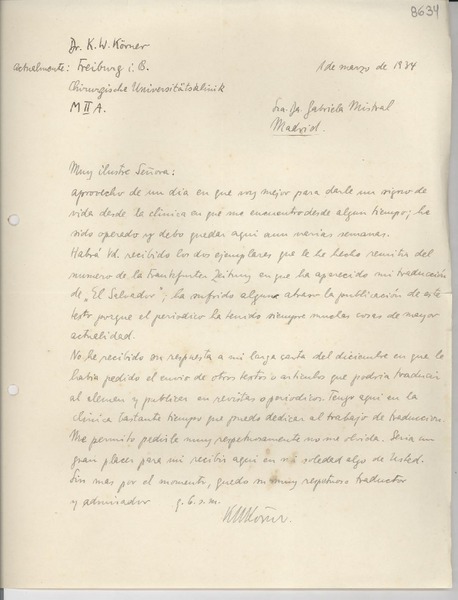 8634
Dr. K. W. Körner
actualmente: Freiburg i. B.
Chirurgische Universitätsklinik
M II A.
1 de marzo de 1934
Sra. Da. Gabriela Mistral
Madrid.
Muy ilustre Señora:
aprovecho de un dia en que voy mejor para darle un signo de
vida desde la clinica en que me encuentro desde algun tiempo; ha
sido operado y debo quedar aqui aun varias semanas.
Habrá Vd. recibido los dos ejemplares que le he hecho remitir del
numero de la Frankfurter Zeitung en que ha aparecido mi traducción
de „El Salvador"; ha sufrido algun atraso la publicación de este
texto porque el periodico ha tenido siempre muchas cosas de mayor
actualidad.
No he recibido su respuesta a mi larga carta del diciembre en que le
habia pedido el envio de otros textos o articulos que podria traducir
al aleman y publicar en revistas o periodicos. Tengo aqui en la
clinica bastante tiempo que puedo dedicar al trabajo de traduccion.
Me permito pedirle muy respetuosamente no me olvida. Seria un
gran placer para mi recibir aqui en mi soledad algo de Usted.
Sin mas por el momento, quedo su muy respetuoso traductor
y admirador q. b. s. m.
KWKörner.